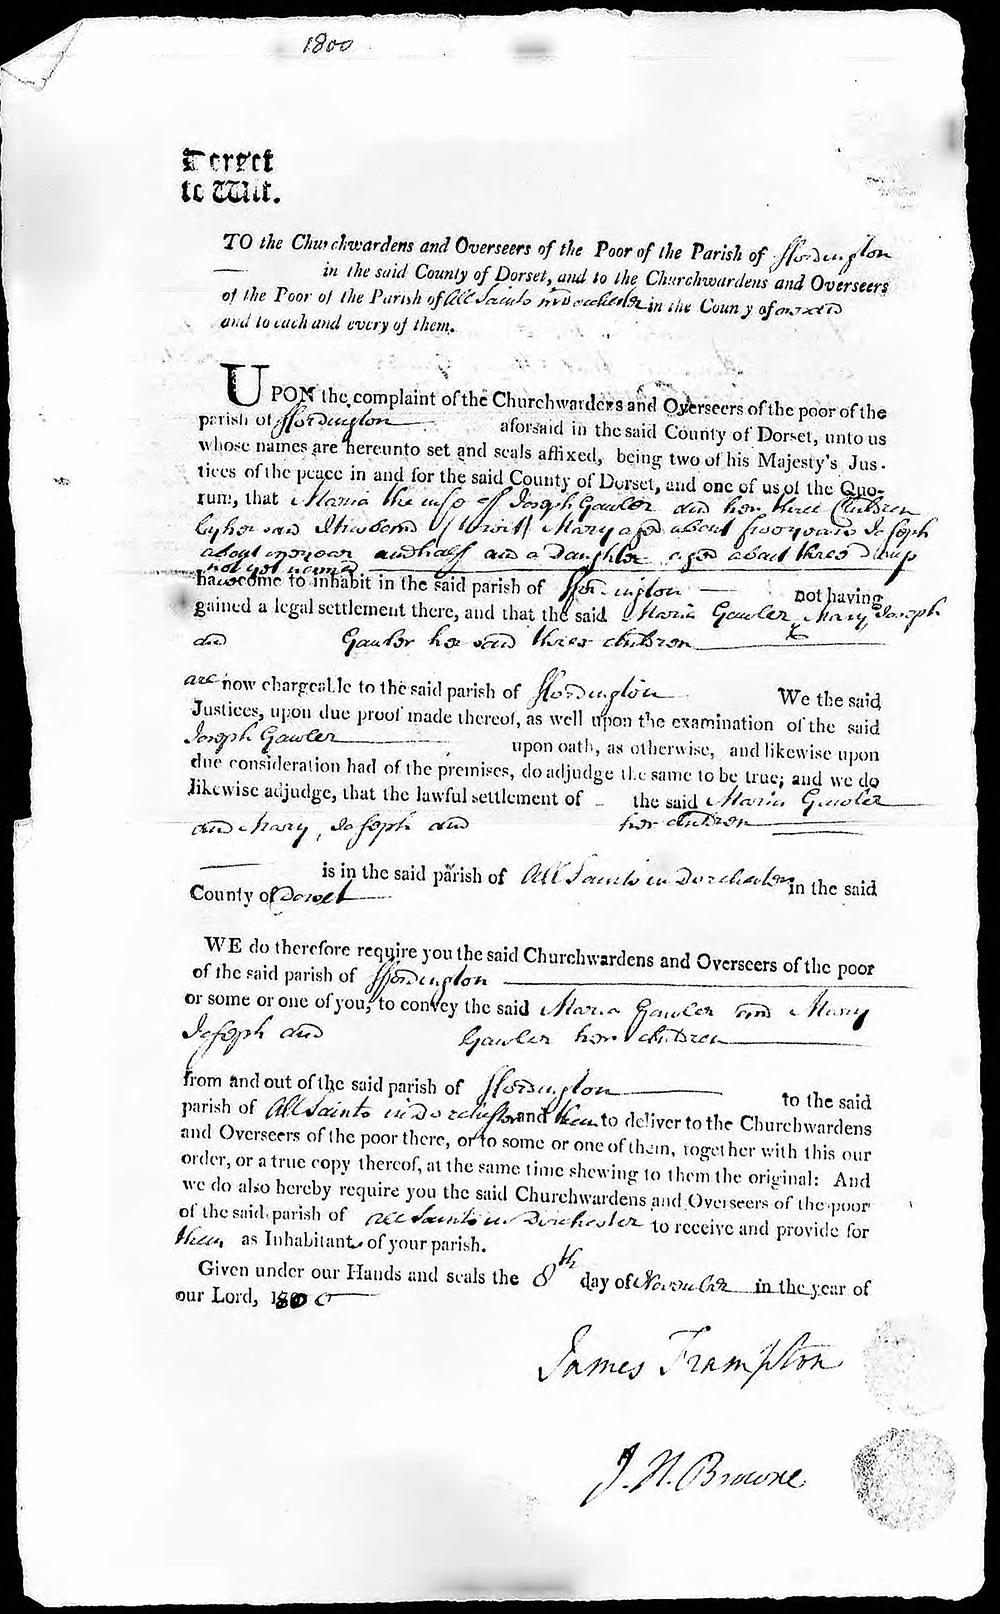 1800
Dorset
to Wit.
TO the Churchwardens and Overseers of the Poor of the Parish of ffordington
in the said County of Dorset, and to the Churchwardens and Overseers
of the Poor of the Parish of All Saints in Dorchester in the County of
and to each and every of them.
UPON the complaint of the Churchwardens and Overseers of the poor of the
parish of ffordington aforsaid in the said County of Dorset, unto us
whose names are hereunto set and seals affixed, being two of his Majesty's Jus-
tices of the peace in and for the said County of Dorset, and one of us of the Quo-
rum, that Maria the wife of Joseph Gawler and her three Children
by her said Husband (to wit) Mary aged about two years Joseph
about one year and half and a Daughter aged about three Days
not yet named
have come to inhabit in the said parish of ffordington not having
gained a legal settlement there, and that the said Maria Gawler, Mary, Joseph
and Gawler her said three children
are now chargeable to the said parish of ffordington We the said
Justices, upon due proof made thereof, as well upon the examination of the said
Joseph Gawler upon oath, as otherwise, and likewise upon
due consideration had of the premises, do adjudge the same to be true; and we do
likewise adjudge, that the lawful settlement of the said Maria Gawler
and Mary, Joseph and her children
is in the said parish of All Saints in Dorchester in the said
County of Dorset
WE do therefore require you the said Churchwardens and Overseers of the poor
of the said parish of ffordington
or some or one of you, to convey the said Maria Gawler and Mary
Joseph and Gawler her children
from and out of the said parish of ffordington to the said
parish of All Saints in Dorchester and them to deliver to the Churchwardens
and Overseers of the poor there, or to some or one of them, together with this our
order, or a true copy thereof, at the same time shewing to them the original: And
we do also hereby require you the said Churchwardens and Overseers of the poor
of the said parish of All Saints in Dorchester to receive and provide for
them as Inhabitants of your parish.
Given under our Hands and seals the 8th day of November in the year of
our Lord, 1800
James Frampton
J. N. Browne